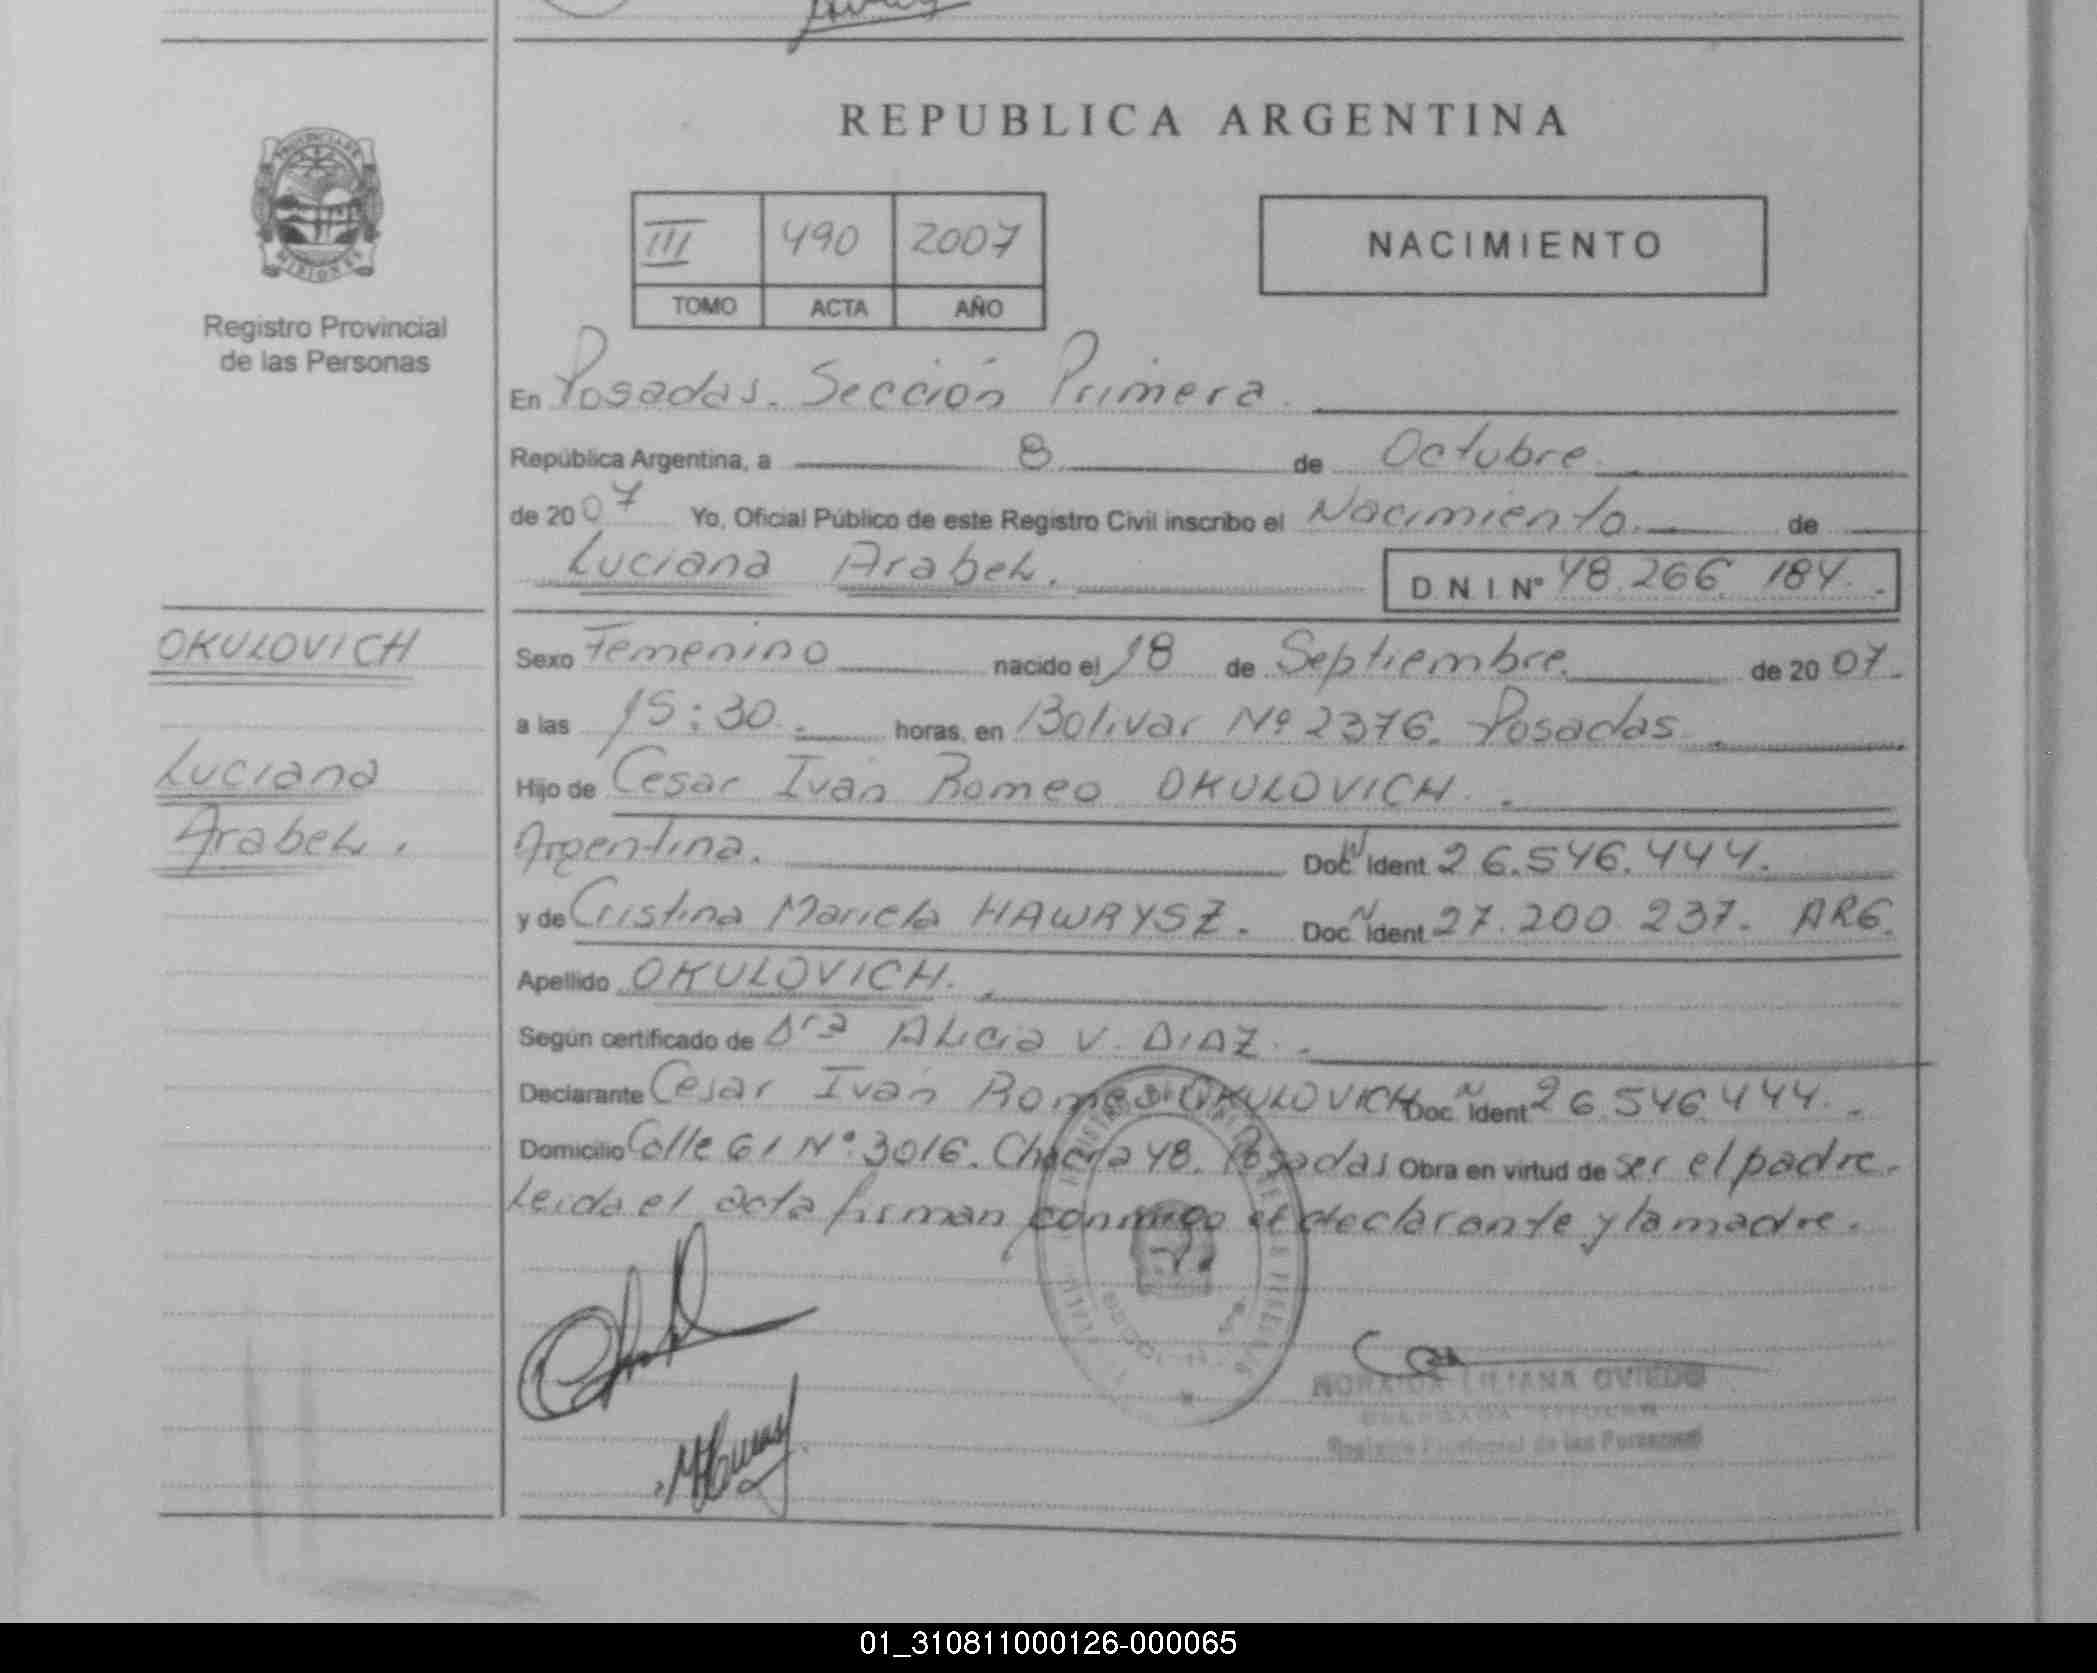 REPUBLICA ARGENTINA
PROVINCIA DE
MISIONES
Registro Provincial
de las Personas
III 490 2007
TOMO ACTA AÑO
NACIMIENTO
En Posadas. Sección Primera.
República Argentina, a 8 de Octubre
de 2007 Yo, Oficial Público de este Registro Civil inscribo el Nacimiento. de
Luciana Arabel. D.N.I. Nº 48.266.184.
OKULOVICH
Luciana
Arabel.
Sexo Femenino nacido el 18 de Septiembre. de 2007.
a las 15:30. horas, en Bolivar Nº 2376. Posadas.
Hijo de Cesar Iván Romeo OKULOVICH.
Argentina. Doc. N Ident. 26.546.444.
y de Cristina Mariela HAWRYSZ. Doc. N Ident. 27.200.237. ARG.
Apellido OKULOVICH.
Según certificado de Dra Alicia V. DIAZ.
Declarante Cesar Iván Romeo OKULOVICH Doc. N Ident 26.546.444.
Domicilio Calle 61 Nº 3016. Chacra 48. Posadas Obra en virtud de ser el padre.
Leida el acta firman conmigo el declarante y la madre.
LILIANA OVIEDO
Registro Provincial de las Personas
01_310811000126-000065